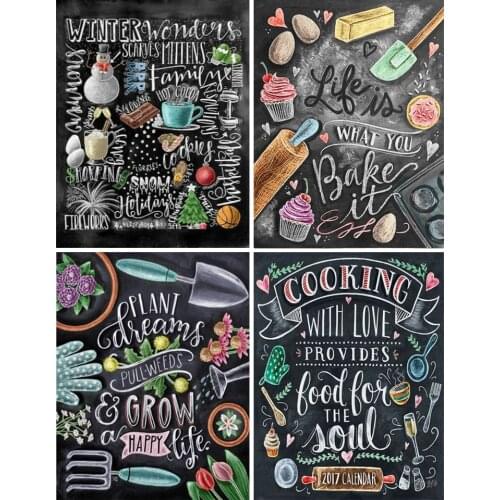 WINTER Wonders
SCARVES MITTENS
Family
HOT COCOA
Cookies
SHOPPING
SNOW
Holidays
FIREWORKS
basketball
Life is
WHAT YOU
Bake
it
PLANT
dreams
PULL WEEDS
& GROW
a HAPPY life.
COOKING
WITH LOVE
PROVIDES
food FOR
THE
soul
2017 CALENDAR